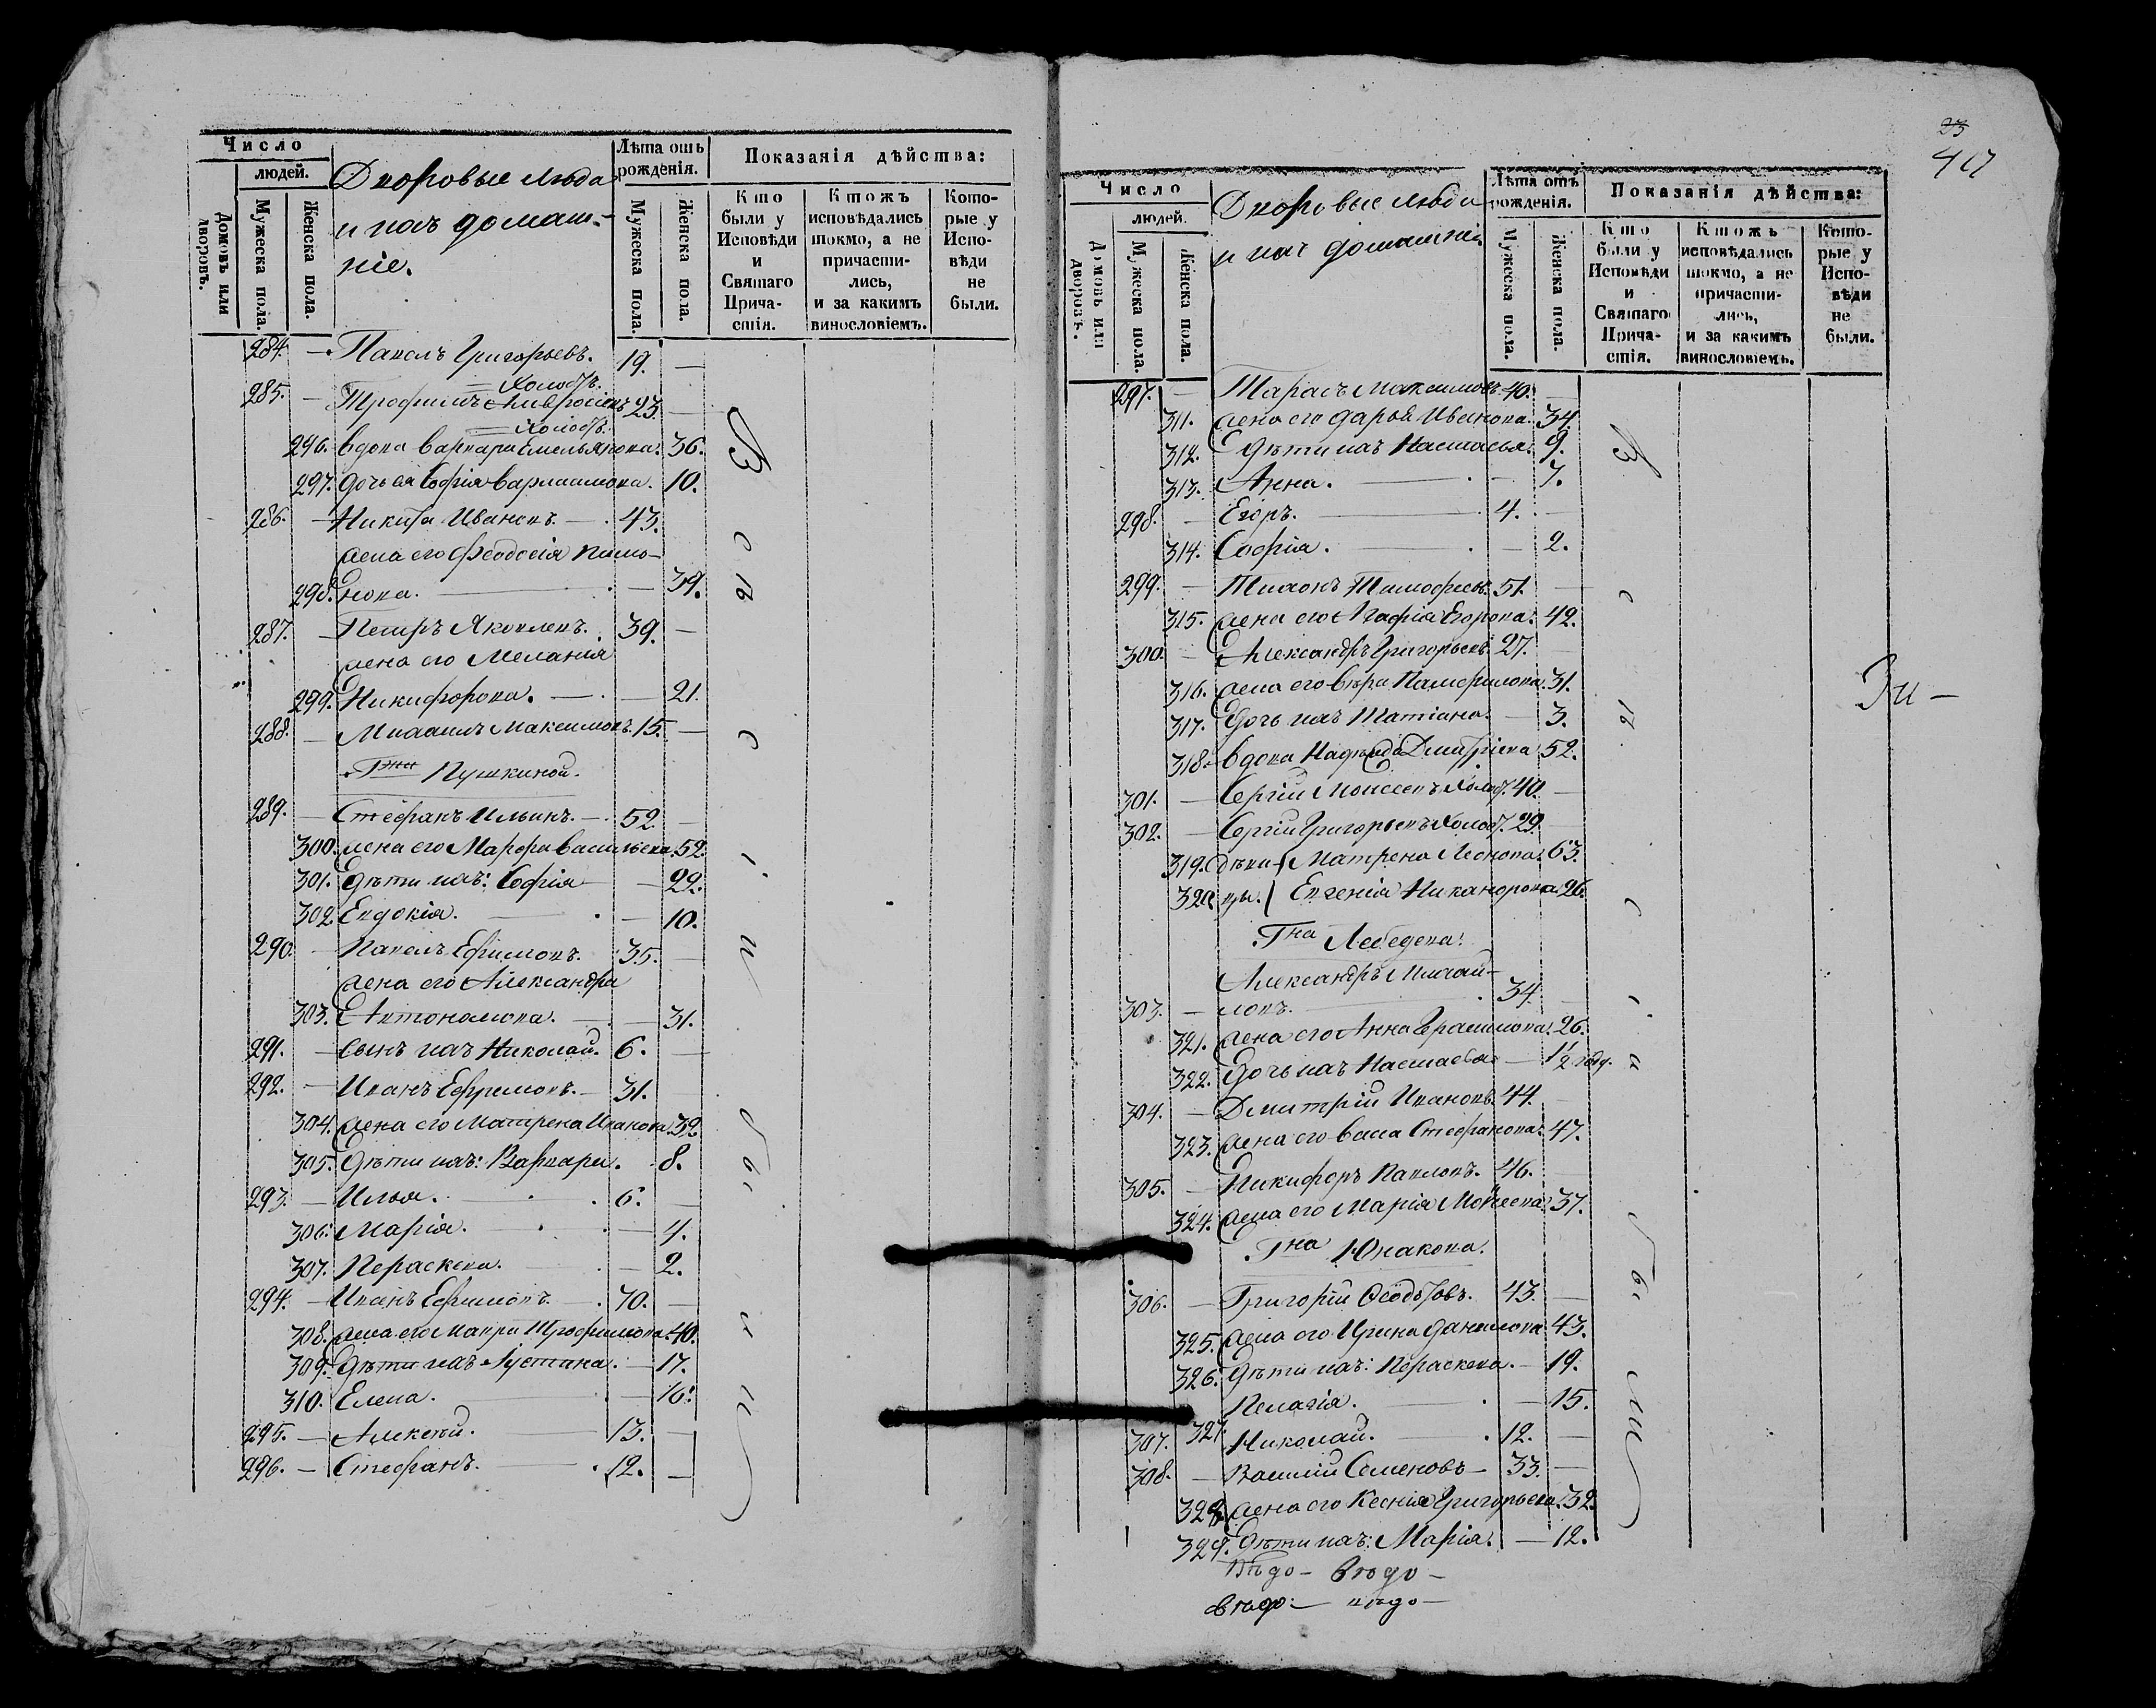 Число
людей.
Домовъ или дворовъ.
Мужеска пола.
Женска пола.
Дворовые люди
и ихъ домаш-
ніе.
Лѣта отъ рожденія.
Мужеска пола.
Женска пола.
Показанія дѣйства:
Кто были у Исповѣди и Святаго Прича-стія.
Ктожъ исповѣдались токмо, а не причасти-лись, и за какимъ винословіемъ.
Кото-рые у Испо-вѣди не были.
284. — Павелъ Григорьевъ. 19. —
Холостъ.
285. — Трофимъ Амвросіевъ 23. —
Холостъ.
296. вдова Варвара Емельянова. 36.
297. дочь ея Софія Варлаамова. 10.
286. — Никита Ивановъ. — 43.
жена его Феодосія
298. нова. — 39.
287. — Петръ Яковлевъ. 39. —
жена его Меланія
299. Никифорова. — — 21.
288. — Михаилъ Максимовъ. 15. —
Гжи Пушкиной.
289. — Стефанъ Ильинъ. — 52. —
300. жена его Марфа Васильева. 52.
301. дѣти ихъ: Софія — 22.
302. Евдокія. — 10.
290. — Павелъ Ефимовъ. 35. —
жена его Александра
303. Автономова. — — 31.
291. — сынъ ихъ Николай. 6. —
292. — Иванъ Ефремовъ. — 31. —
304. жена его Матрена Иванова. 32.
305. дѣти ихъ: Варвара. 8.
293. — Илья. 6. —
306. Марія. — 4.
307. Параскева. — 2.
294. — Иванъ Ефимовъ. — 70. —
308. жена его Мавра Трофимова. 40.
309. дѣти ихъ Іустина. — 17.
310. Елена. — 16.
295. — Алексѣй. 13. —
296. — Стефанъ. 12. —
23
417
Число
людей.
Домовъ или дворовъ.
Мужеска пола.
Женска пола.
Дворовые люди
и ихъ домашніе
Лѣта отъ рожденія.
Мужеска пола.
Женска пола.
Показанія дѣйства:
Кто были у Исповѣди и Святаго Прича-стія.
Ктожъ исповѣдались токмо, а не причасти-лись, и за какимъ винословіемъ.
Кото-рые у Испо-вѣди не были.
297. — Тарасъ Максимовъ. 40. —
311. жена его Дарья Иванова. 34.
312. дѣти ихъ Настасья. 9.
313. Анна. — 7.
298. — Егоръ. 4. —
314. Софія. — 2.
299. — Тихонъ Тимофеевъ. 51. —
315. жена его Агафія Егорова. 42.
300. — Александръ Григорьевъ. 27. —
316. жена его Вѣра Памфилова. 31.
317. дочь ихъ Татіана. — 3.
318. вдова Надежда Дмитріева 52.
301. — Сергій Моисеевъ Холост. 40. —
302. — Сергій Григорьевъ Холост. 29. —
319. дѣви- Матрена Леонова. 63.
320. цы. Евгенія Никанорова. 26.
Гна Лебедева.
Александръ Михай-
303. — ловъ. 34. —
321. жена его Анна Герасимова. 26.
322. дочь ихъ Настасья — 1/2 году.
304. — Дмитрій Ивановъ. 44. —
323. жена его Васса Стефанова. 47.
305. — Никифоръ Павловъ. 46. —
324. жена его Марія Моисеева. 37.
Гна Юнакова.
306. — Григорій Федотовъ. 43. —
325. жена его Ирина Данилова. 43.
326. дѣти ихъ: Параскева. — 19.
327. Пелагія. — 15.
307. Николай. 12. —
308. — Василій Семеновъ — 33. —
328. жена его Ксенія Григорьева. 32.
329. дѣти ихъ: Марія. — 12.